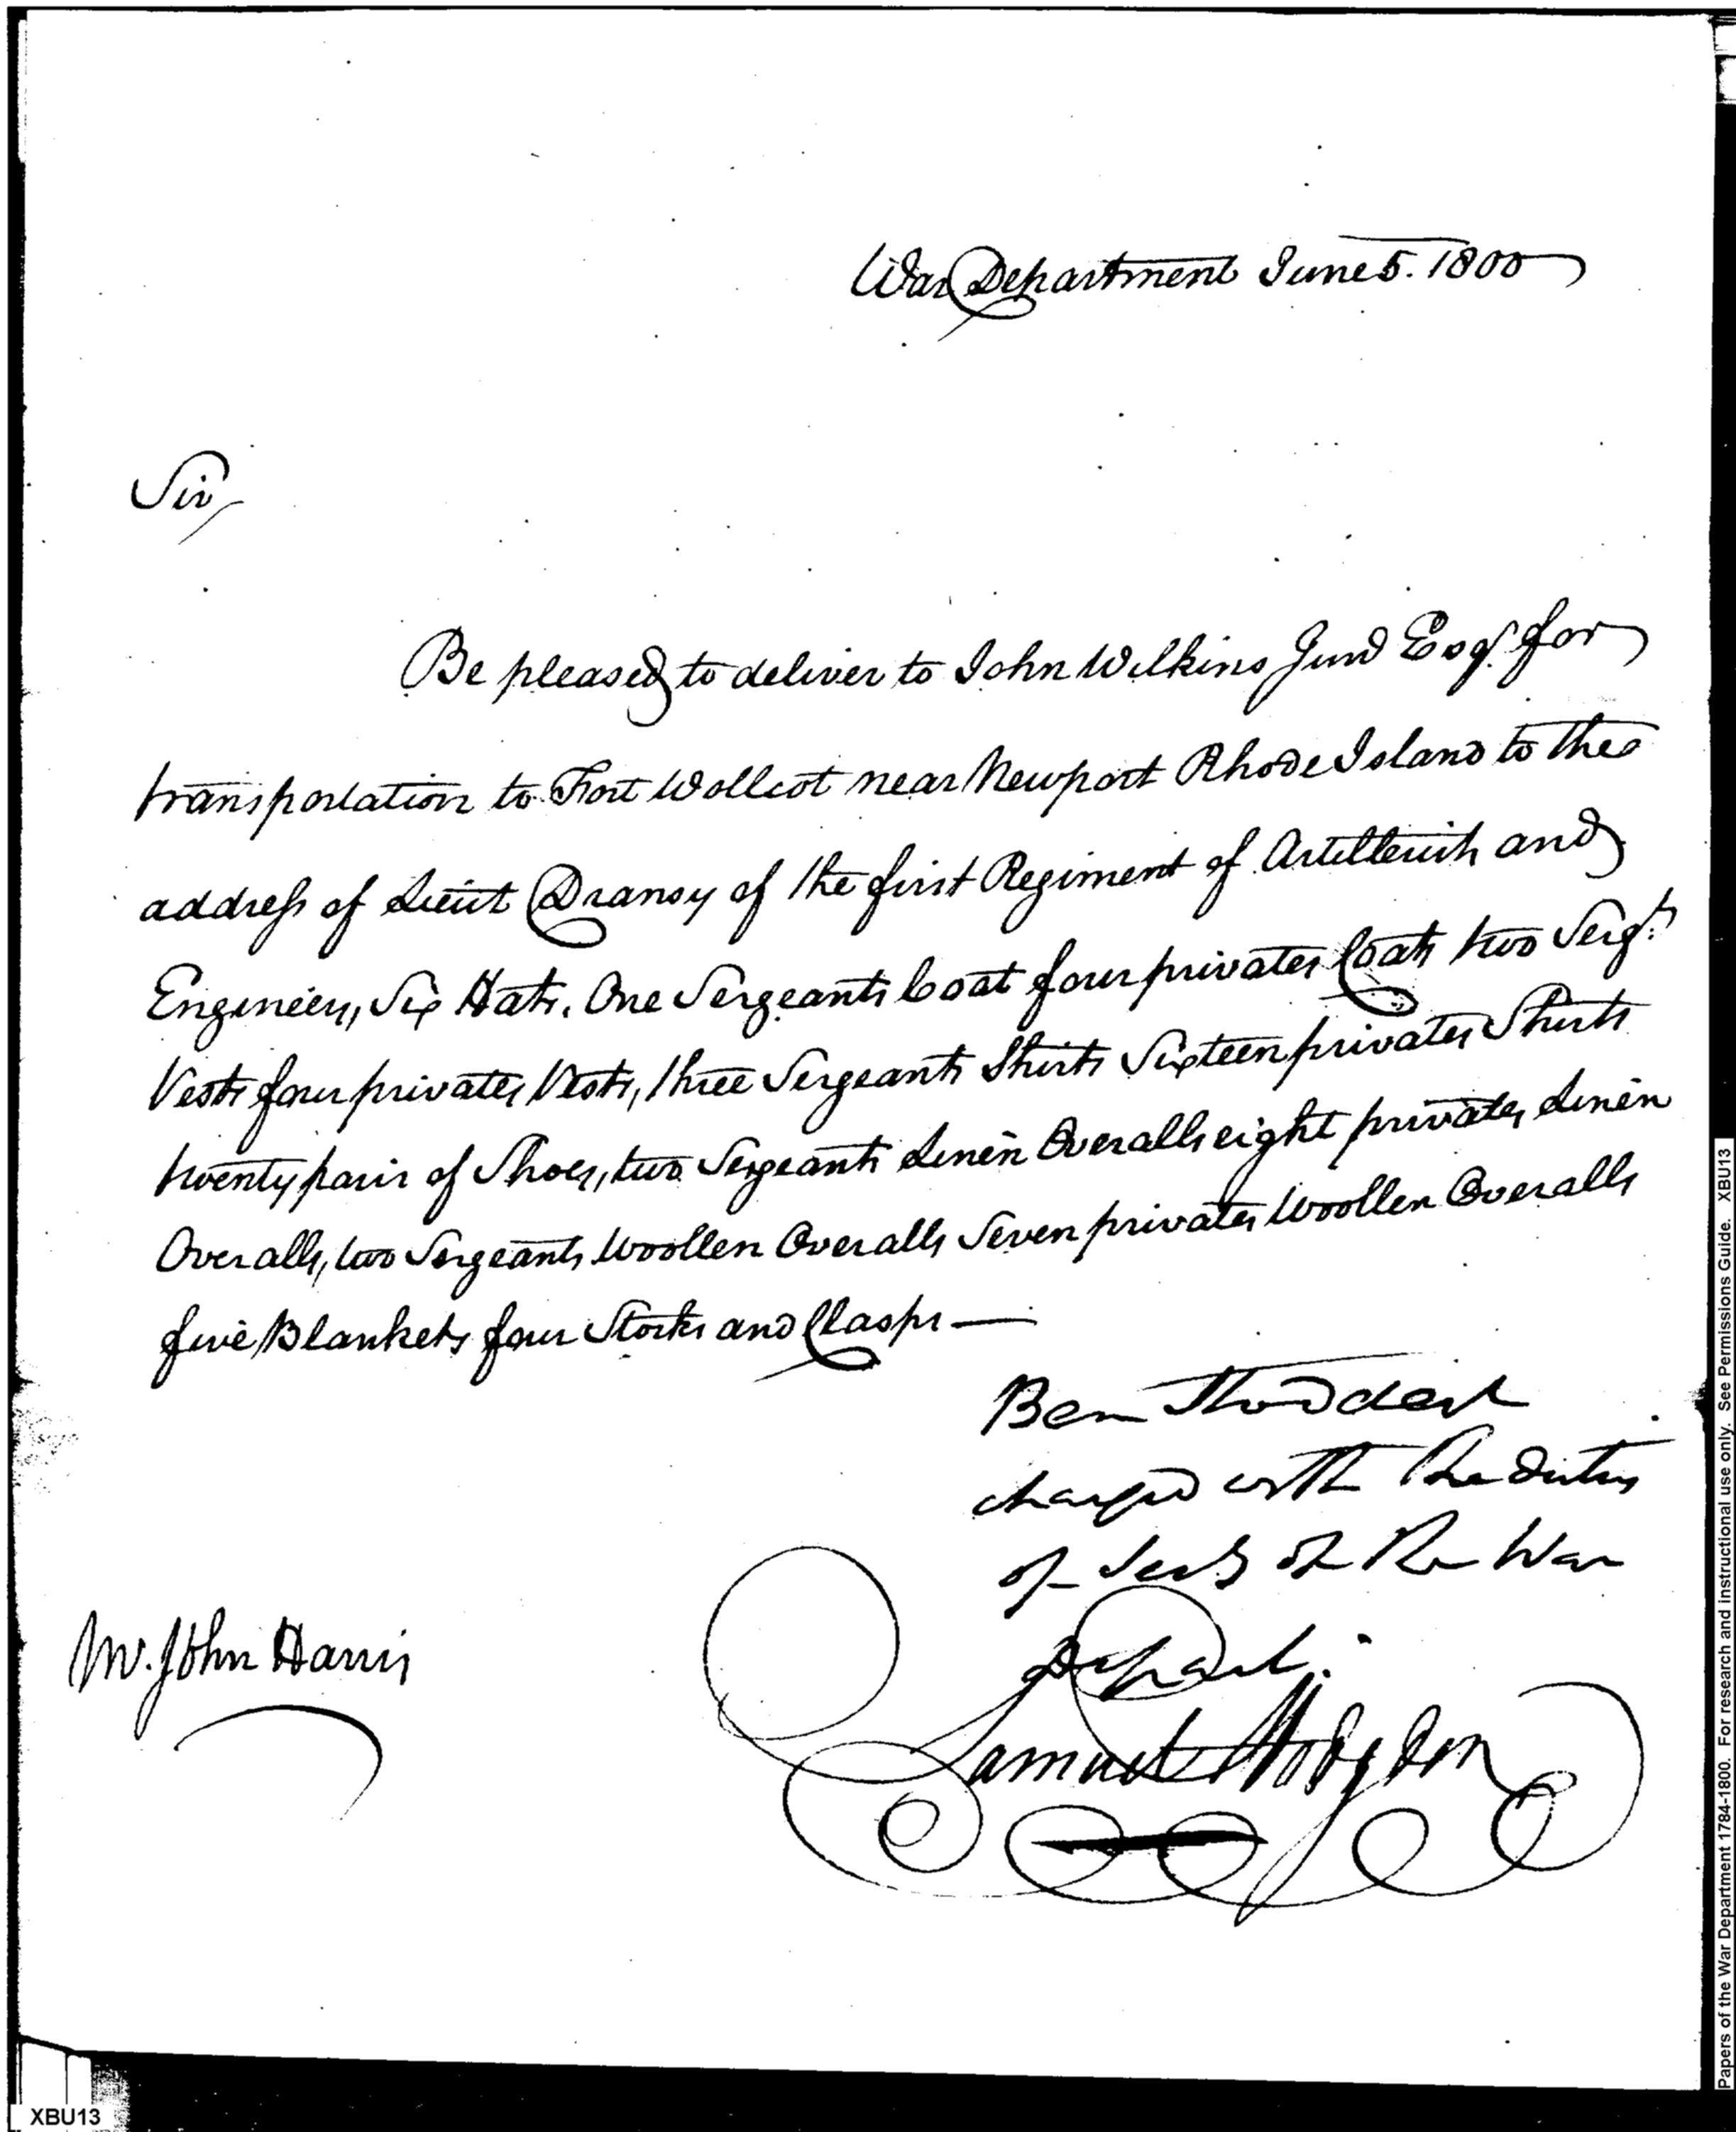 War Department June 5. 1800
Sir
Be pleased to deliver to John Wilkins Junr Esqr. for
transportation to Fort Wollcot near Newport Rhode Island to the
address of Lieut Dransy of the first Regiment of Artillerists and
Engineers, Six Hats. One Sergeants Coat four privates Coats two Sergts
Vests four privates Vests, three Sergeants Shirts Sixteen privates Shirts
twenty pairs of Shoes, two Sergeants Linen Overalls eight privates Linen
Overalls, two Sergeants Woollen Overalls Seven privates Woollen Overalls
five Blankets four Stocks and Clasps —
Ben Stoddert
charged with the duties
of Secy of the War
Depart.
Samuel Hodgdon
Mr. John Harris
XBU13
Papers of the War Department 1784-1800. For research and instructional use only. See Permissions Guide. XBU13